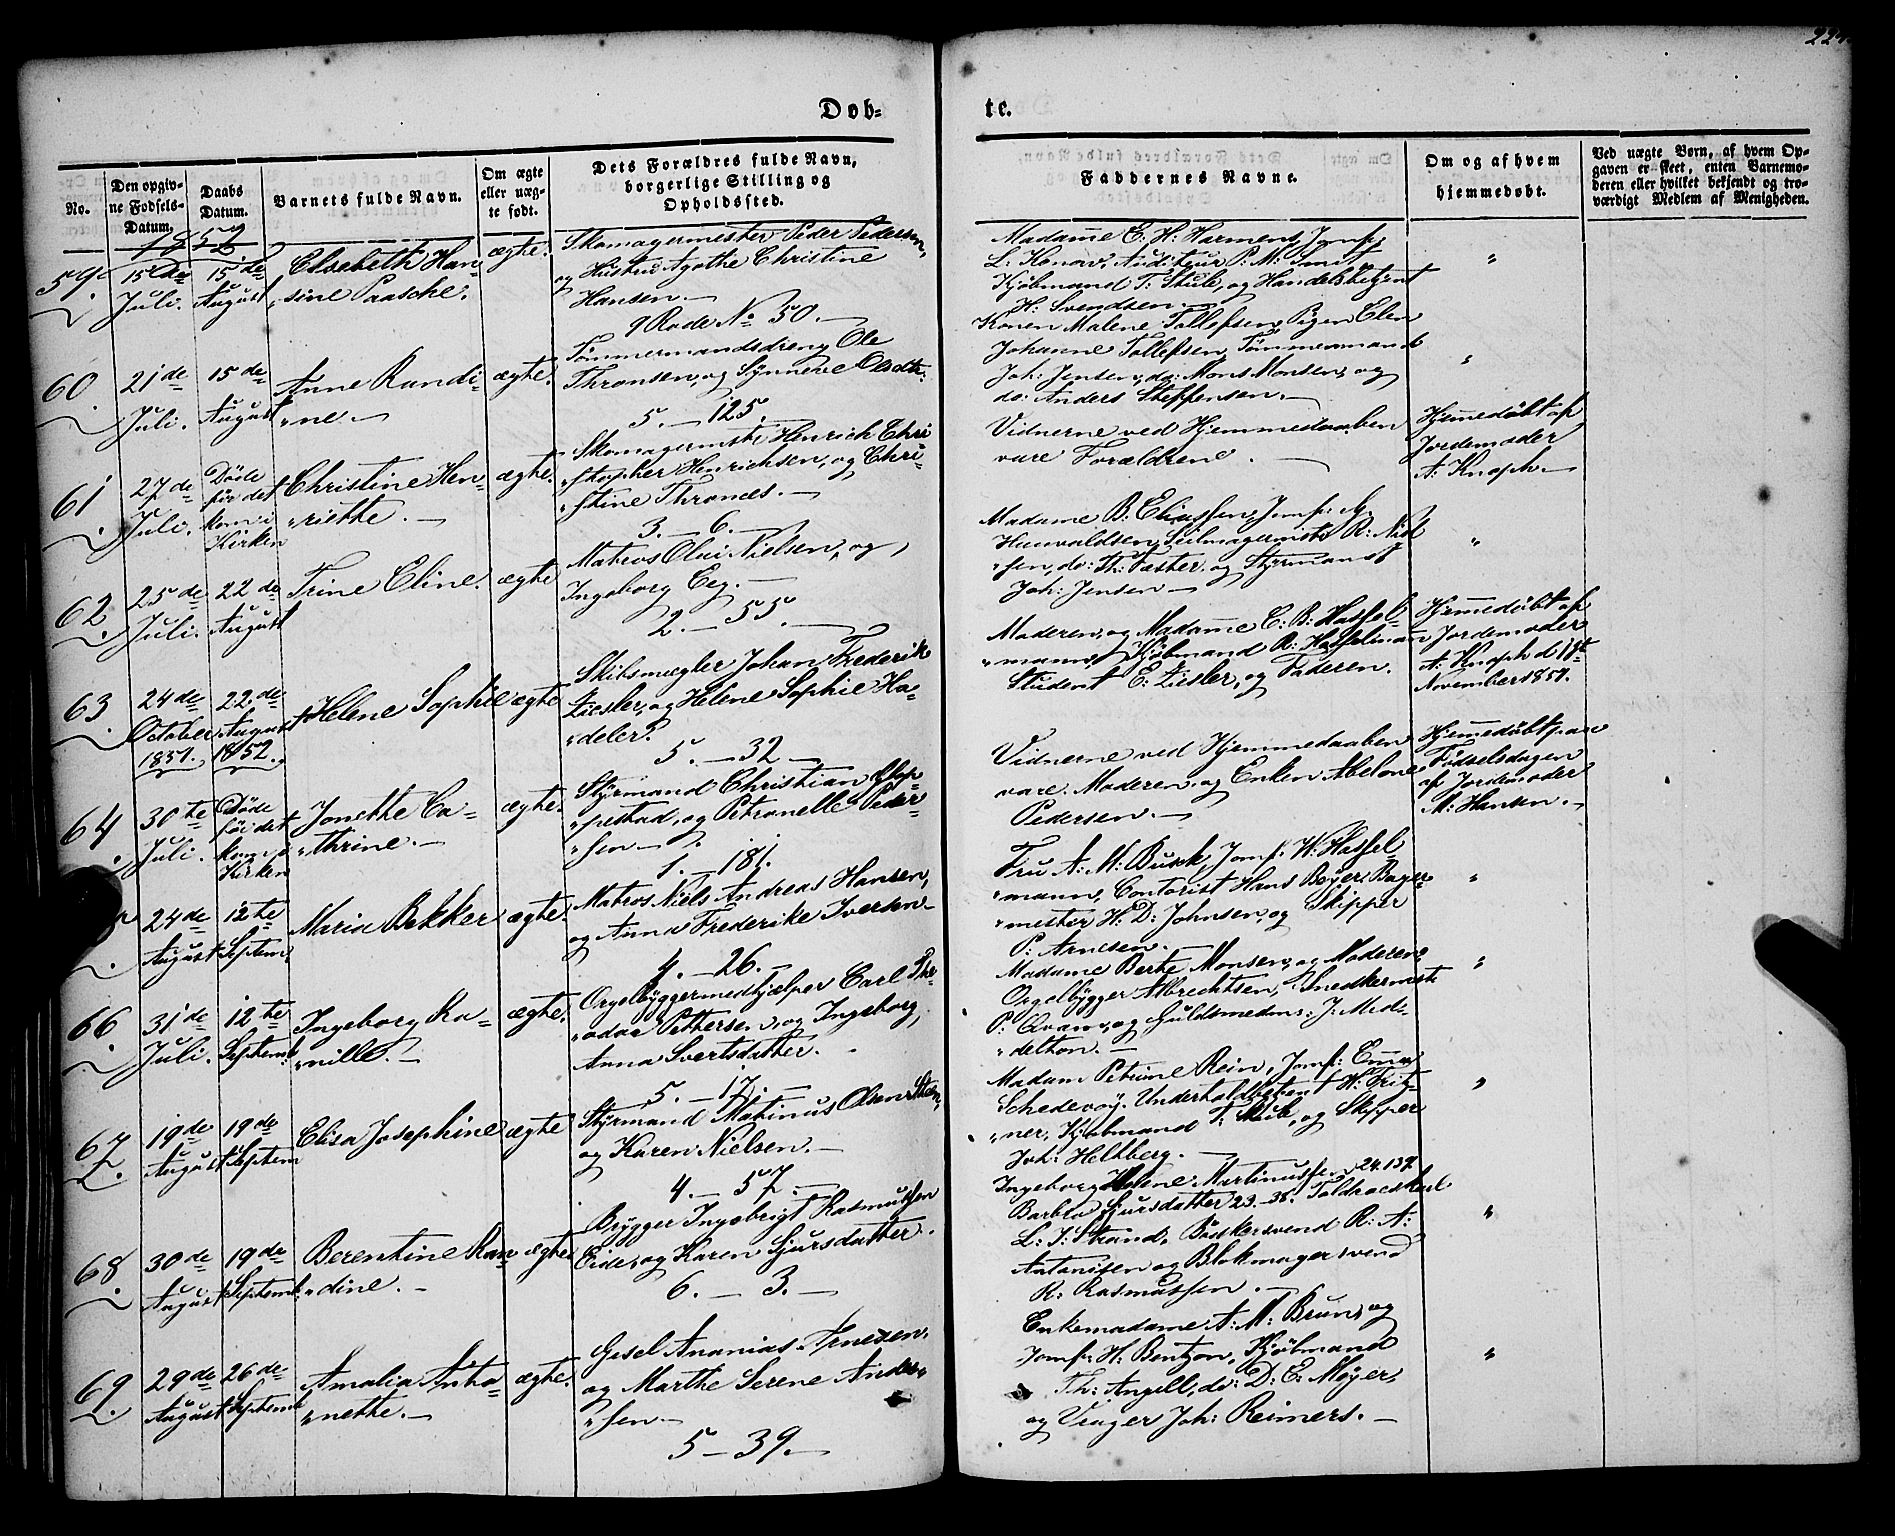 224
Døb-
te.
No.
Den opgiv-
ne Fødsels-
Datum.
Daabs
Datum.
Barnets fulde Navn.
Om ægte
eller uæg-
te født.
Dets Forældres fulde Navn,
borgerlige Stilling og
Opholdssted.
Faddernes Navne.
Om og af hvem
hjemmedøbt.
Ved uægte Børn, af hvem Op-
gaven er skeet, enten Barnemo-
deren eller hvilket bekjendt og tro-
værdigt Medlem af Menigheden.
1852
59.
15de
Juli.
15de
August
Elsebeth Han-
sine Paasche.
ægte.
Skomagermester Peder Pedersen,
og Hustru Agathe Christine
Hansen.
9 Rode No 50.
Madame C. H. Harmens, Jomf:
L. Konow, Auditeur P. M.
Kjøbmand T. Stub, og Handelsbetjent
H. Svendsen.
"
60.
21de
Juli.
15de
August
Anne Randi-
"ne.
ægte.
Tømmermandsdreng Ole
Thronsen, og Synneve Olsdtr:
5. 125.
Konen Malene Tollefsen, Pigen Elen
Johanne Tollefsen, Tømmermand
Joh: Jensen, do: Mons Monsen, og
do: Anders Steffensen.
"
61.
27de
Juli.
Døde
før det
kom i
Kirken
Christine Hen-
"riette.
ægte.
Skomagermstr Henrich Chri
"stopher Henrichsen, og Chri-
"stine Thrones.
3. 6.
Vidnerne ved Hjemmedaaben
vare Forældrene.
Hjemmedøbt af
Jordemoder
A. Knoph.
62.
25de
Juli.
22de
August
Trine Eline.
ægte
Matros Olai Nielsen, og
Ingeborg Eeg.
2. 55.
Madame B: Eliassen, Jomf: A.
Hunvaldsen, Seilmagermstr R: Niel
"sen, do: Th: Fæster og Styrmand
Joh: Jensen
"
63.
24de
October
1851.
22de
August
1852.
Helene Sophie
ægte
Skibsmægler Johan Frederik
Ziesler, og Helene Sophie Ha-
"deler.
5. 32
Moderen, og Madame C: B: Hassel-
"mann, Kjøbmand R: Hasselmann
Student E: Ziesler, og Faderen.
Hjemmedøbt af
Jordemoder
A: Knoph d 19de
November 1851.
64.
30te
Juli.
Døde
før det
kom i
Kirken
Jonette Ca-
"thrine.
ægte.
Styrmand Christian Olop-
"pestad, og Petronelle Peder
"sen.
1. 181.
Vidnerne ved Hjemmedaaben
vare Moderen, og Enken Abelone
Pedersen.
Hjemmedøbt paa
Fødselsdagen
af Jordemoder
M: Hansen.
24de
August
12te
Septem.
Maria Bekker
ægte.
Matros Niels Andreas Hansen,
og Anna Frederike Iversen
4. 26.
Fru A: M: Busck, Jomf: W: Hassel-
"mann, Contorist Hans Beyer, Bager-
"mester H: D: Johnsen, og Skipper
P: Arnesen.
"
66.
31de
Juli.
12te
Septemb.
Ingeborg Ka-
"nille.
ægte.
Orgelbyggermedhjælper Carl The-
"odor Pettersen, og Ingeborg
Anna Svertsdatter.
5. 17.
Madame Berthe Monsen, og Moderen,
Orgelbygger Albrechtsen, Snedkermstr
P: Qvam, og Guldsmedms: J: Mid-
"delthon.
"
67.
19de
August
19de
Septem
Elisa Josephine
ægte
Styrmand Matinus Olsen
og Karen Nielsen.
4. 57.
Madam Petrine Rein, Jomf: Emma
Schedevoy, Underholdbetjent H. Fritz-
"ner, Kjøbmand T. Stub, og Skipper
Joh: Heltberg.
"
68.
30de
August
19de
Septemb.
Berentine Ran
"dine.
ægte
Brygger Ingebrigt Rasmussen
Eide, og Karen Sjursdatter.
6. 3.
Ingeborg Helene Martinussen 24.139.
Barbro Sjursdatter 23-35. Toldraadskarl
L: J: Strand, Bødkersvend R: A:
Antonisen og Blokmagersvend
R: Rasmussen.
"
69.
29de
August
26de
Septemb
Amalia Anto-
"nette.
ægte.
Gesel Ananias Arnesen,
og Marthe Serene Ander-
"sen.
5 39.
Enkemadame A: M: Brun, og
Jomfr: H: Bentzon, Kjøbmand
Th: Angell, do: D: E: Møyer,
og Vrager Joh: Reimers.
"